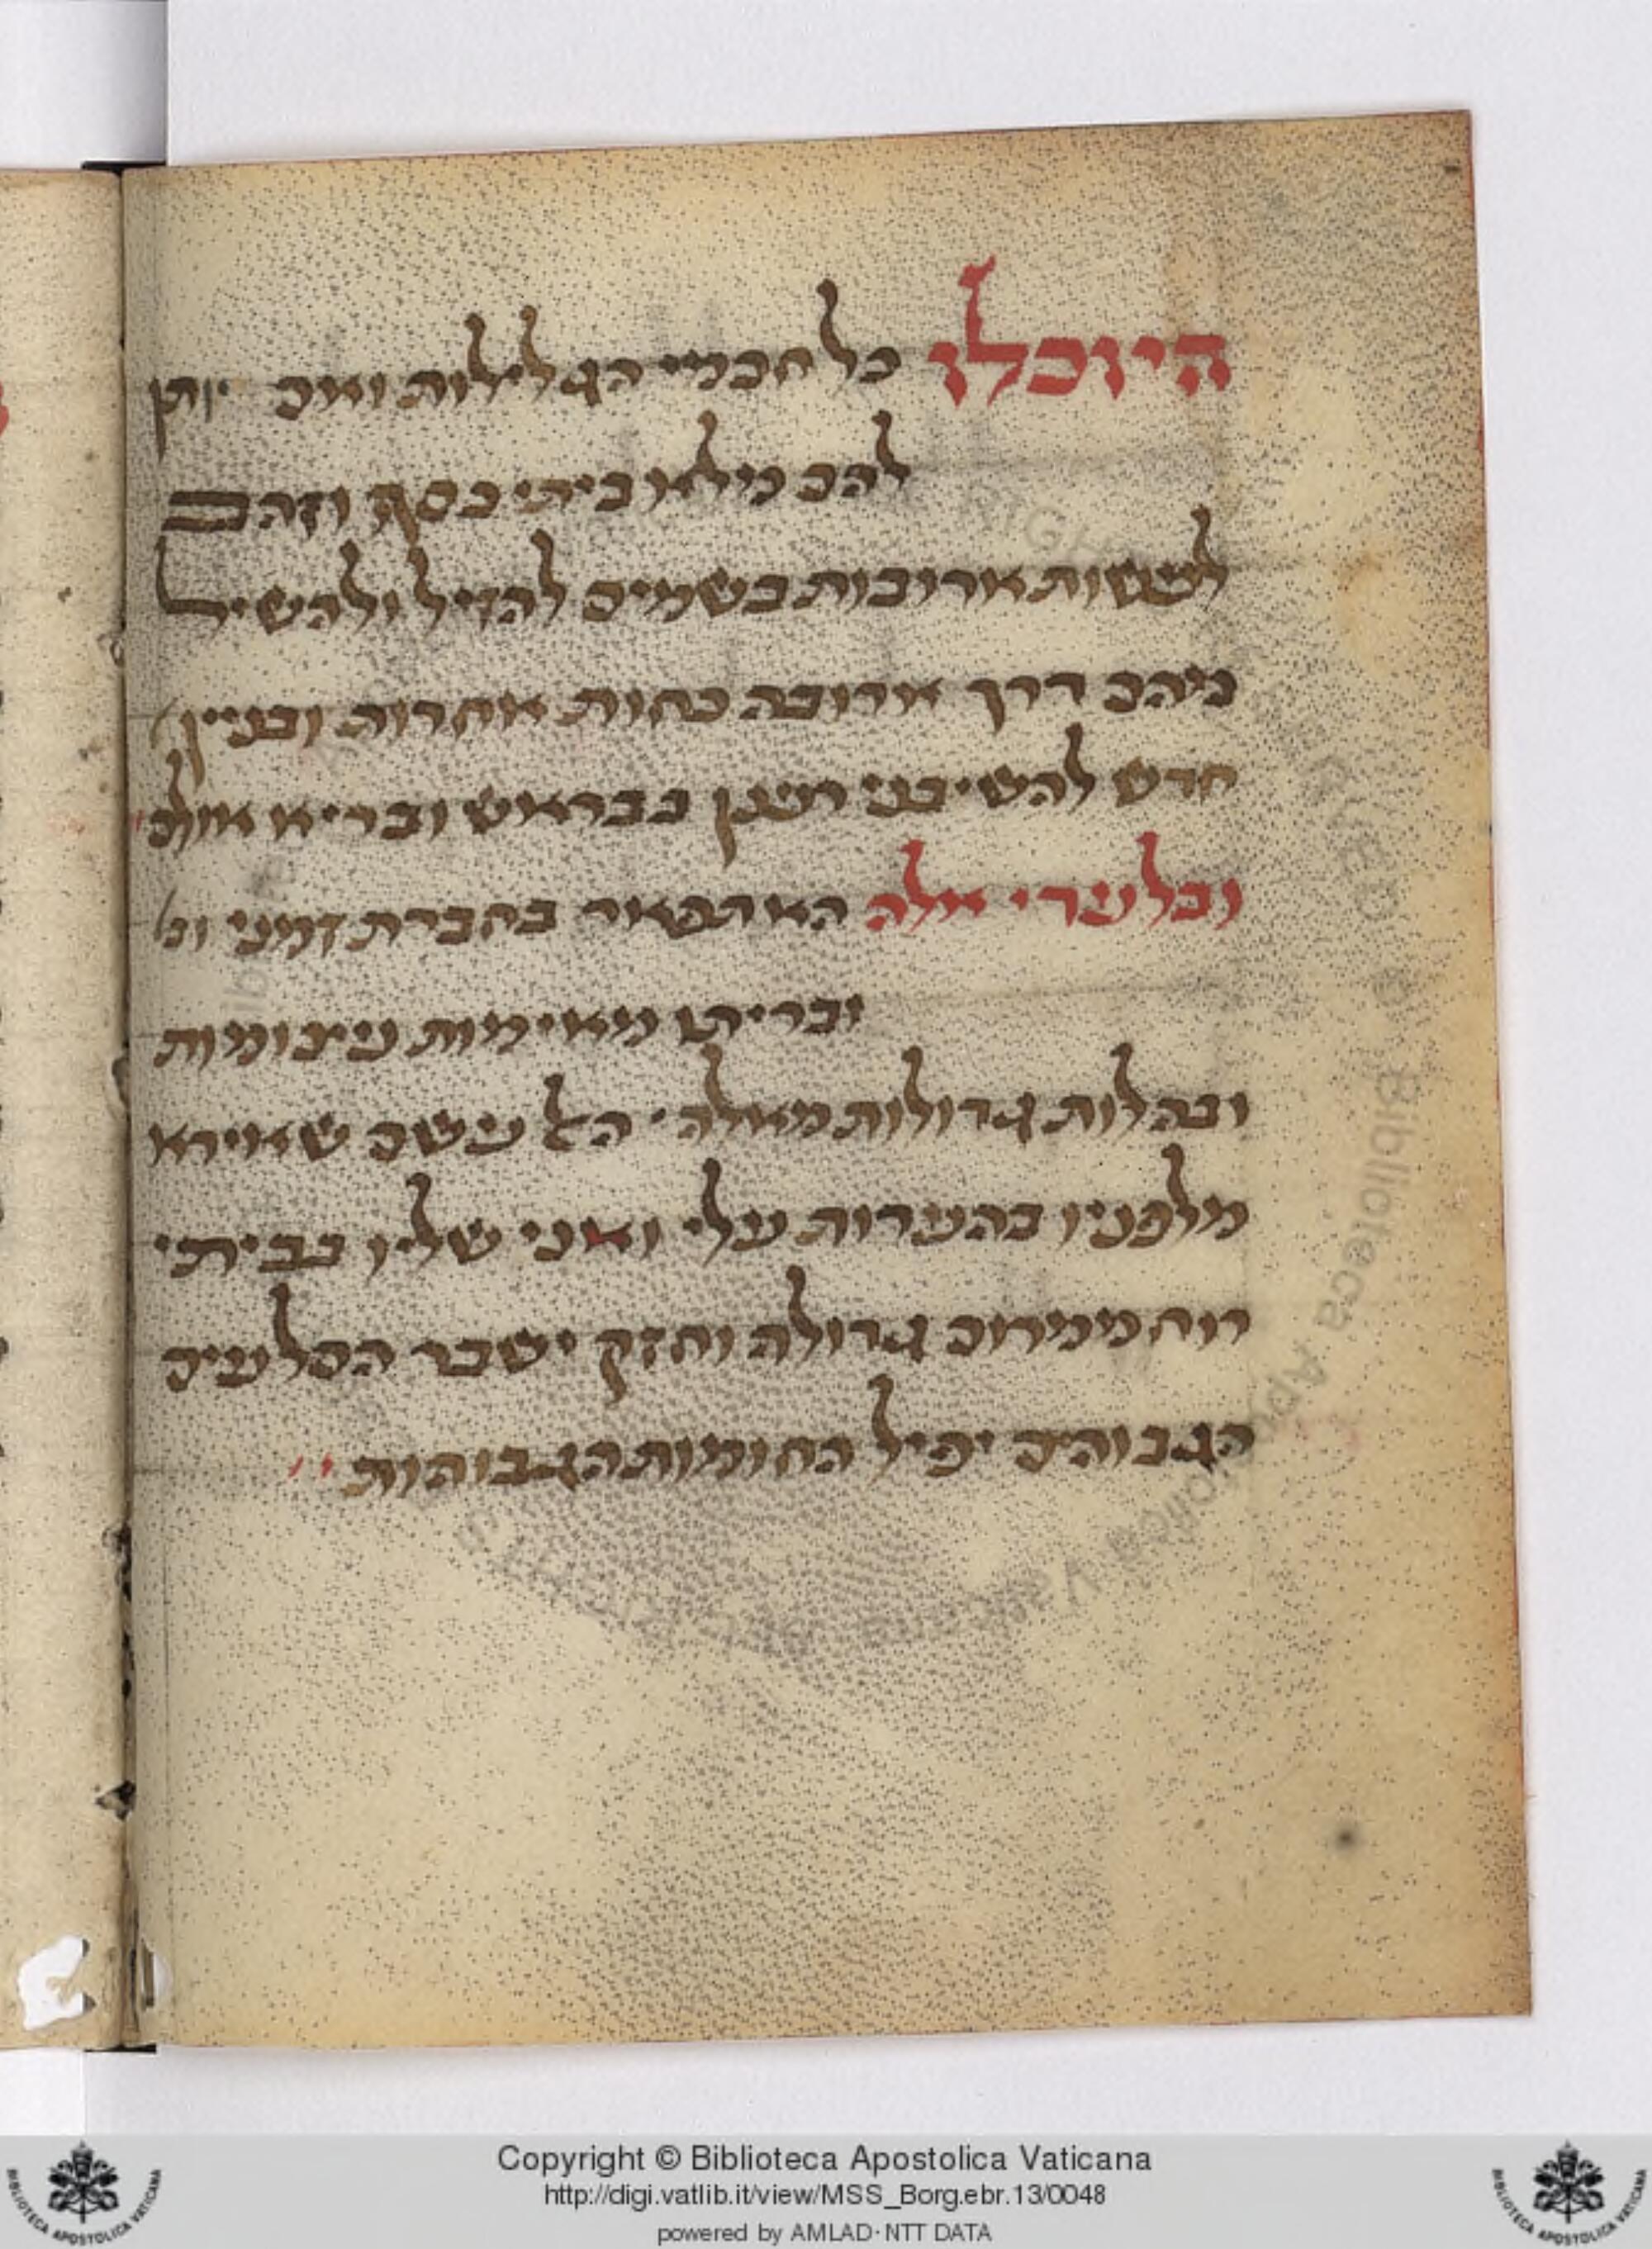 היוכלו כל חכמי הגלילות ואם יותן
להם מילאו ביתי כסף וזהב
לעשות ארובות בשמים להזיל ולהשיל
מיהם דרך ארובה כחות אחרות ובניין
חדש להשיבני רענן כבראש ובריא אולם
ובלעדי אלה האתפאר בחברת זמני
ובריתו מאימות עצומות
ובהלות גדולות מאלה הלעשם שאירא
מלפניו בהערות עלי ואני שליו בביתי
רוח ממרום גדולה וחזק ישבר הסלעים
הגבוהים יפיל החומות הגבוהות
Copyright © Biblioteca Apostolica Vaticana
http://digi.vatlib.it/view/MSS_Borg.ebr.13/0048
powered by AMLAD·NTT DATA